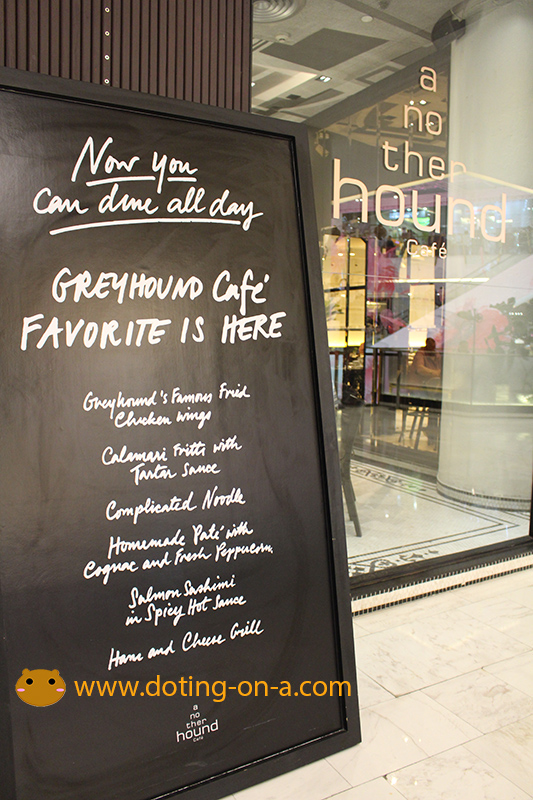 Now you
Can dine all day
GREYHOUND Café
FAVORITE IS HERE
Greyhound's Famous Fried
Chicken wings
Calamari Fritti with
Tartar Sauce
Complicated Noodle
Homemade Paté with
Cognac and Fresh Peppucorn.
Salmon Sashimi
in Spicy Hot Sauce
Ham and Cheese Grill
www.doting-on-a.com
a
no
ther
hound
Café
a
no
ther
hound
Café